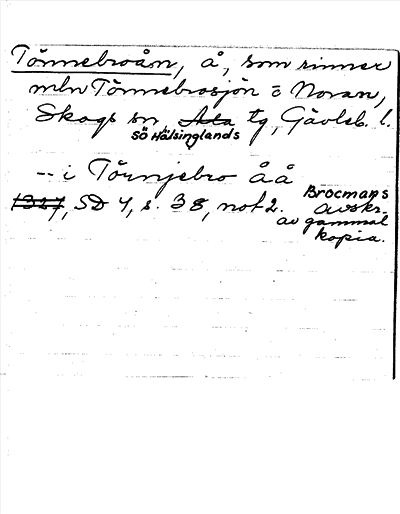 Tönnebroån, å, som rinner
mln Tönnebrosjön o Noran,
Skogs sn, Ala tg, Gävleb. l.
Sö Hälsinglands
-- i Tönnjebro åå
1327, SD 4, s. 38, not 2. Brocmans
avskr.
av gammal
kopia.